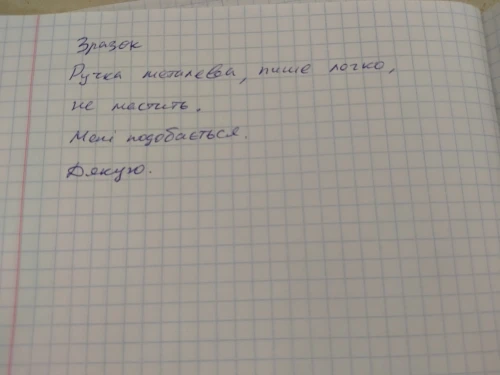 Зразок
Ручка металева, пише легко,
не мастить.
Мені подобається.
Дякую.